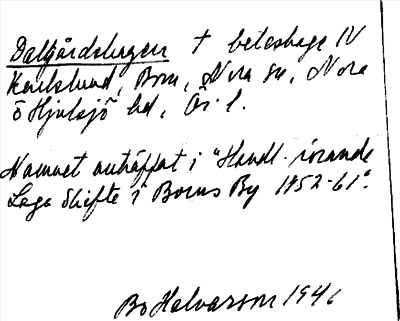 Dalgårdshagen † beteshage IV
Karlslund, Born, Nora sn, Nora
o Hjulsjö hd, Ör. l.
Namnet anträffat i "Handl. rörande
Laga Skifte i Borns By 1852-61".
Bo Halvarson 1946